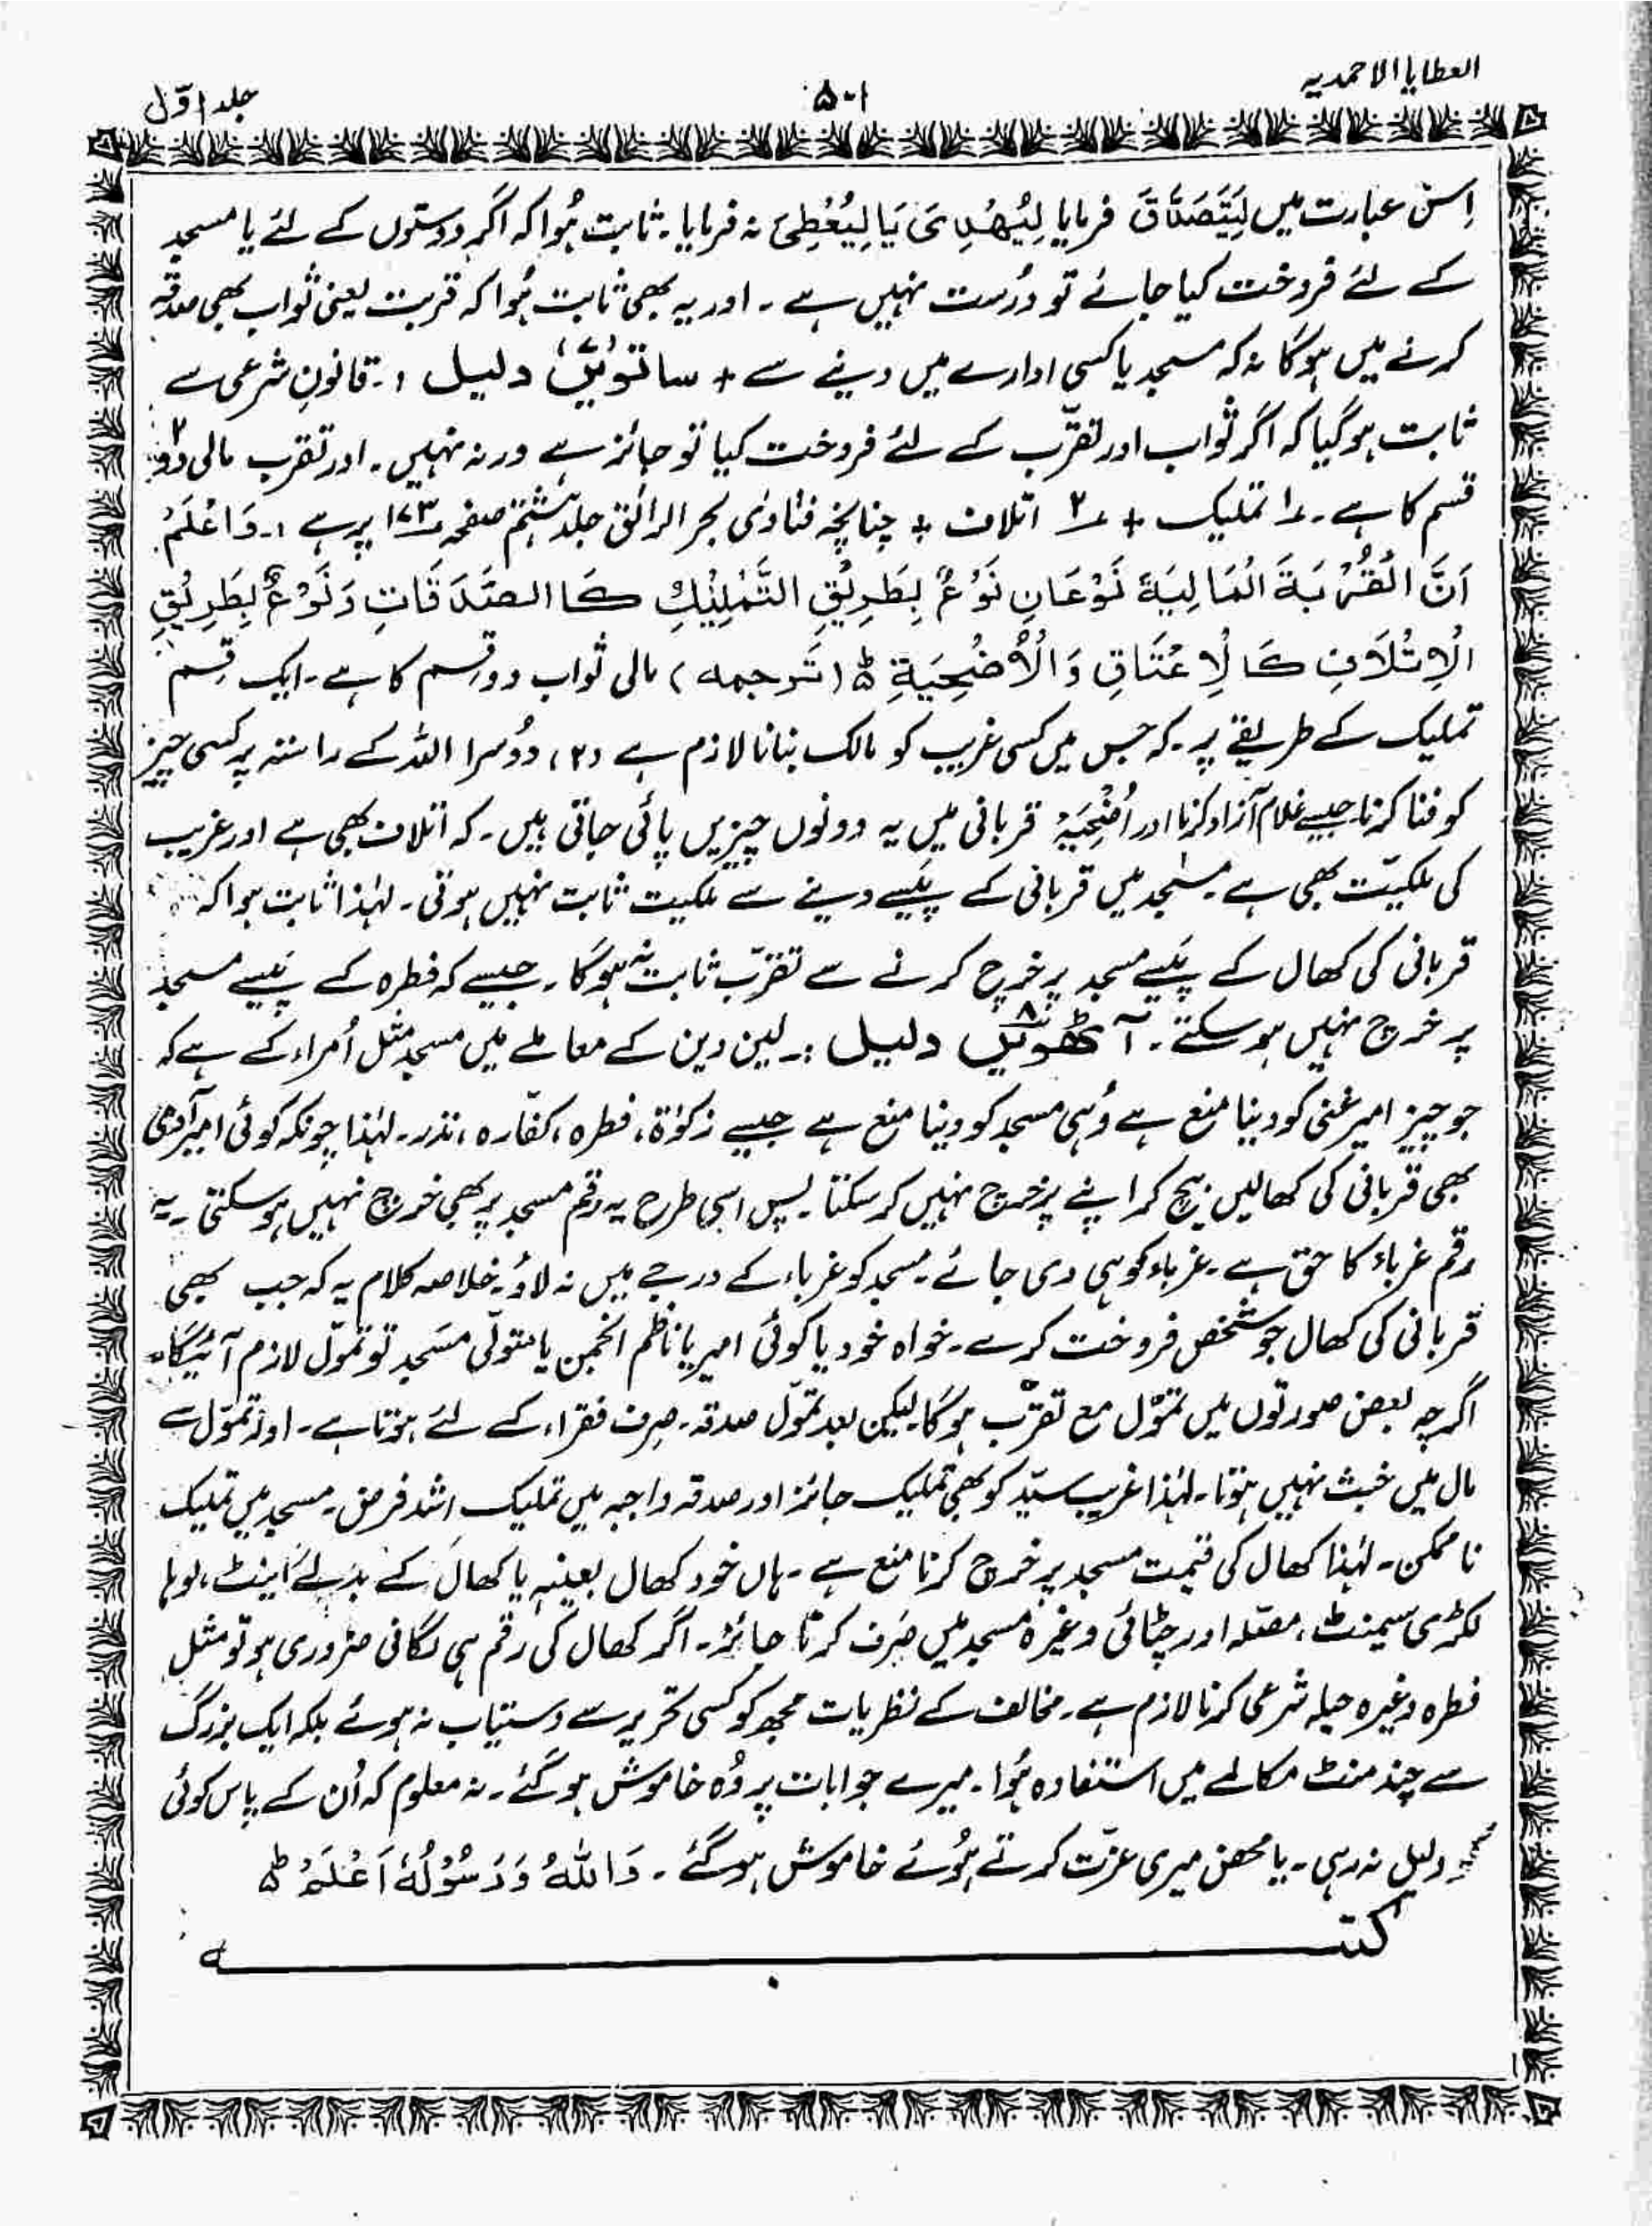 العطایا الاحمدیہ
۵۰۱
جلد اوّل
اِس عبارت میں لِیَتَصَدَّقَ فرمایا لِیُهْدِیَ یَا لِیُعْطِیَ نہ فرمایا۔ ثابت ہُوا کہ اگر دوستوں کے لئے یا مسجد
کے لئے فروخت کیا جائے تو دُرست نہیں ہے۔ اور یہ بھی ثابت ہُوا کہ قربت یعنی ثواب بھی صدقہ
کرنے میں ہوگا نہ کہ مسجد یا کسی ادارے میں دینے سے + ساتویں دلیل :۔ قانونِ شرعی سے
ثابت ہوگیا کہ اگر ثواب اور تقرّب کے لئے فروخت کیا تو جائز ہے ورنہ نہیں۔ اور تقرب مالی دو۲
قسم کا ہے۔ ۱؎ تملیک + ۲؎ اتلاف + چنانچہ فتاویٰ بحر الرائق جلد ہشتم صفحہ ۱۷۳ پر ہے :۔ وَاعْلَمْ
اَنَّ الْقُرْبَةَ الْمَالِیَةَ نَوْعَانِ نَوْعٌ بِطَرِیْقِ التَّمْلِیْكِ كَالصَّدَقَاتِ وَنَوْعٌ بِطَرِیْقِ
الْاِتْلَافِ كَالْاِعْتَاقِ وَالْاُضْحِیَةِ ط (ترجمہ) مالی ثواب دو قسم کا ہے۔ ایک قسم
تملیک کے طریقے پر۔ کہ جس میں کسی غریب کو مالک بنانا لازم ہے (۲) دوُسرا اللہ کے راستہ پر کسی چیز
کو فنا کرنا۔ جیسے غلام آزاد کرنا اور اُضْحِیَہْ قربانی میں یہ دونوں چیزیں پائی جاتی ہیں۔ کہ اتلاف بھی ہے اور غریب
کی ملکیّت بھی ہے۔ مسجد میں قربانی کے پیسے دینے سے ملکیت ثابت نہیں ہوتی۔ لہٰذا ثابت ہوا کہ
قربانی کی کھال کے پیسے مسجد پر خرچ کرنے سے تقرّب ثابت نہ ہوگا۔ جیسے کہ فطرہ کے پیسے مسجد
پر خرچ نہیں ہو سکتے۔ آٹھویں۸ دلیل :۔ لین دین کے معاملے میں مسجد مثل اُمراء کے ہے کہ
جو چیز امیر غنی کو دینا منع ہے وُہی مسجد کو دینا منع ہے جیسے زکوٰۃ، فطرہ، کفّارہ، نذر۔ لہٰذا چونکہ کوئی امیر آدمی
بھی قربانی کی کھالیں بیچ کر اپنے پر خرچ نہیں کر سکتا۔ پس اسی طرح یہ رقم مسجد پر بھی خرچ نہیں ہو سکتی۔ یہ
رقم غرباء کا حق ہے۔ غرباء کو ہی دی جائے۔ مسجد کو غرباء کے درجے میں نہ لاؤ۔ خلاصہ کلام یہ کہ جب بھی
قربانی کی کھال جو شخص فروخت کرے۔ خواہ خود یا کوئی امیر یا ناظم انجمن یا متولّی مسجد تو تموّل لازم آئیگا۔
اگرچہ بعض صورتوں میں تموّل مع تقرّب ہوگا۔ لیکن بعد تموّل صدقہ۔ صِرف فقراء کے لئے ہوتا ہے۔ اور تموّل سے
مال میں خبث نہیں ہوتا۔ لہٰذا غریب سیّد کو بھی تملیک جائز اور صدقہ واجبہ میں تملیک اشد فرض۔ مسجد میں تملیک
ناممکن۔ لہٰذا کھال کی قیمت مسجد پر خرچ کرنا منع ہے۔ ہاں خود کھال بعینہٖ یا کھال کے بدلے اینٹ، لوہا
لکڑی سیمنٹ، مصلہ اور چٹائی وغیرہ مسجد میں صَرف کرنا جائز۔ اگر کھال کی رقم ہی لگانی ضروری ہو تو مثل
فطرہ وغیرہ حیلہ شرعی کرنا لازم ہے۔ مخالف کے نظریات مجھ کو کسی تحریر سے دستیاب نہ ہوئے بلکہ ایک بزرگ
سے چند منٹ مکالمے میں استفادہ ہُوا۔ میرے جوابات پر وُہ خاموش ہو گئے۔ نہ معلوم کہ اُن کے پاس کوئی
دلیل نہ رہی۔ یا محض میری عزّت کرتے ہوُئے خاموش ہو گئے۔ وَاللّٰهُ وَرَسُوْلُهٗ اَعْلَمُ ط
کتبہ